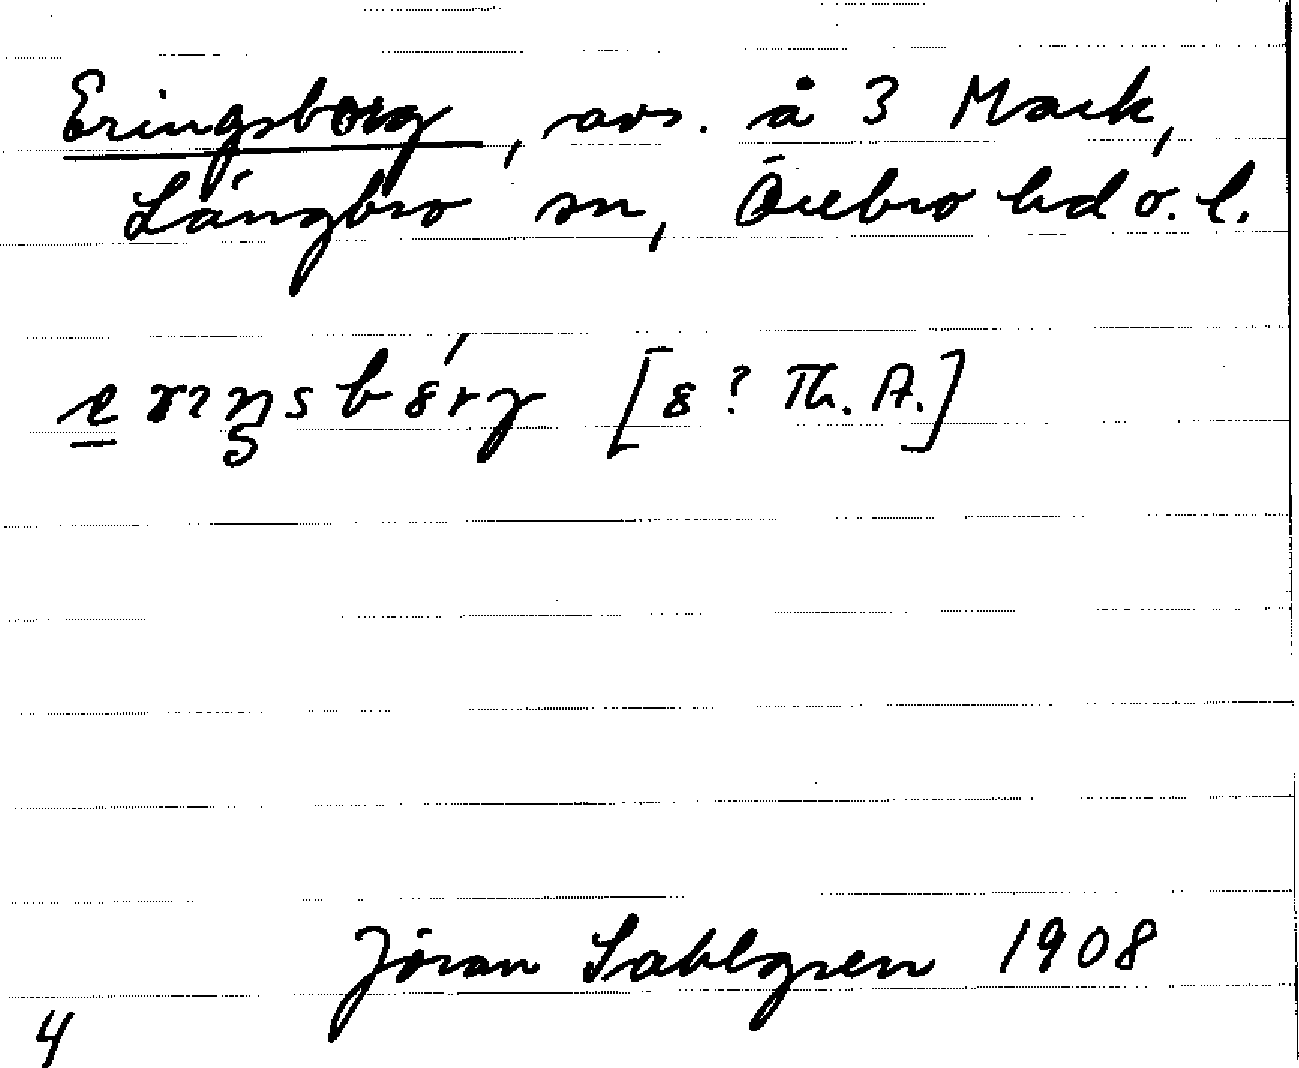 Eringsborg, avs. å 3 Mark,
Långbro sn, Örebro hd ö. l.
[8? Th. A.]
Jöran Sahlgren 1908
4